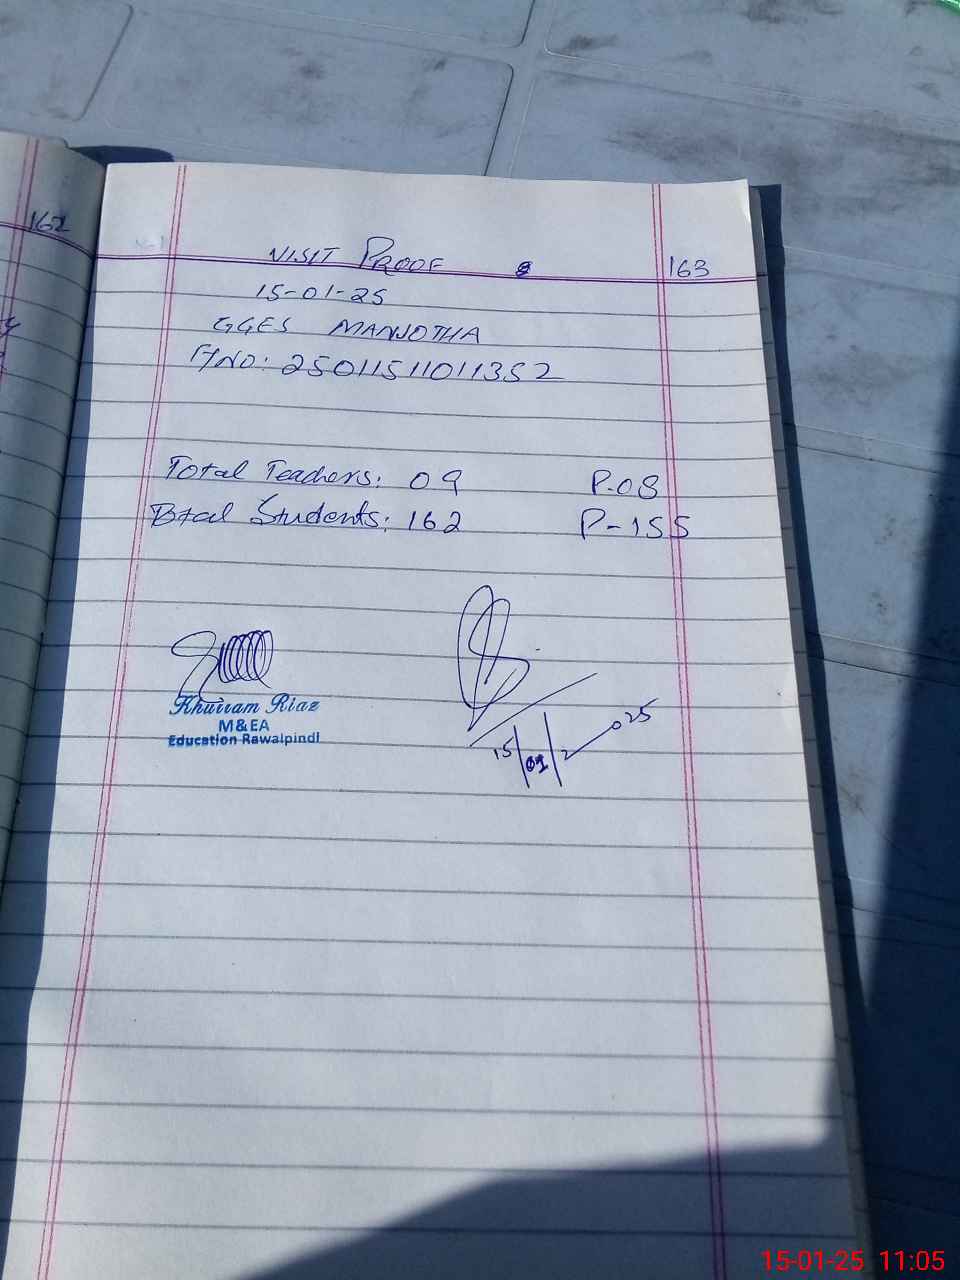 162
VISIT PROOF
163
15-01-25
GGES MANJOTHA
A/NO: 25011511011352
Total Teachers: 09 P-08
Total Students: 162 P-155
Khurram Riaz
M&EA
Education Rawalpindi
15/01/2025
15-01-25 11:05